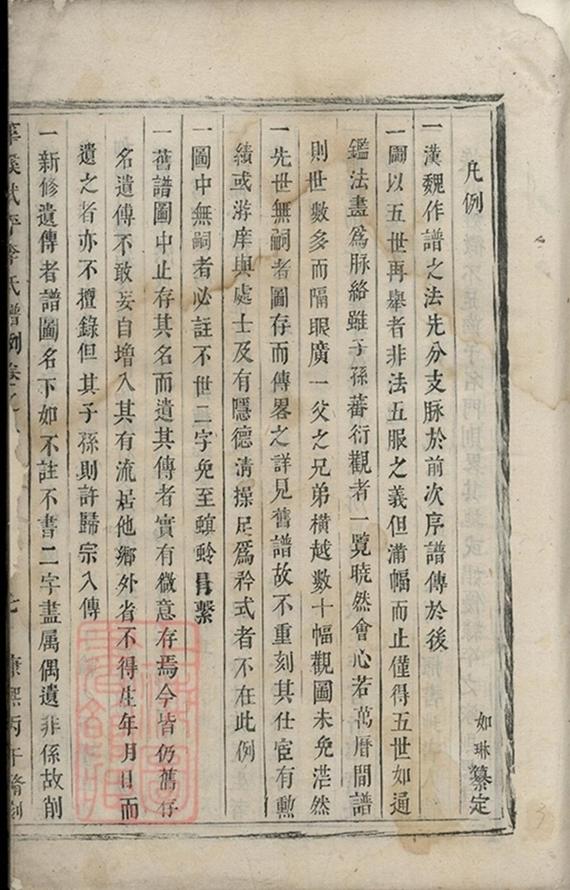 凡例
如琳纂定
一漢魏作譜之法先分支脉於前次序譜傳於後
一圖以五世再舉者非法五服之義但滿幅而止僅得五世如通
鑑法畫爲脉絡雖子孫蕃衍觀者一覽曉然會心若萬曆間譜
則世數多而隔眼廣一父之兄弟橫越數十幅觀圖未免茫然
一先世無嗣者圖存而傳畧之詳見舊譜故不重刻其仕宦有勲
績或游庠與處士及有隱德清操足爲矜式者不在此例
一圖中無嗣者必註不世二字免至螟蛉冒繫
一舊譜圖中止存其名而遺其傳者實有微意存焉今皆仍舊存
名遺傳不敢妄自增入其有流居他鄉外省不得生年月日而
遺之者亦不擅錄但其子孫則許歸宗入傳
一新修遺傳者譜圖名下如不註不書二字盡属偶遺非係故削
李氏譜例卷之 七 康熙丙午脩刻